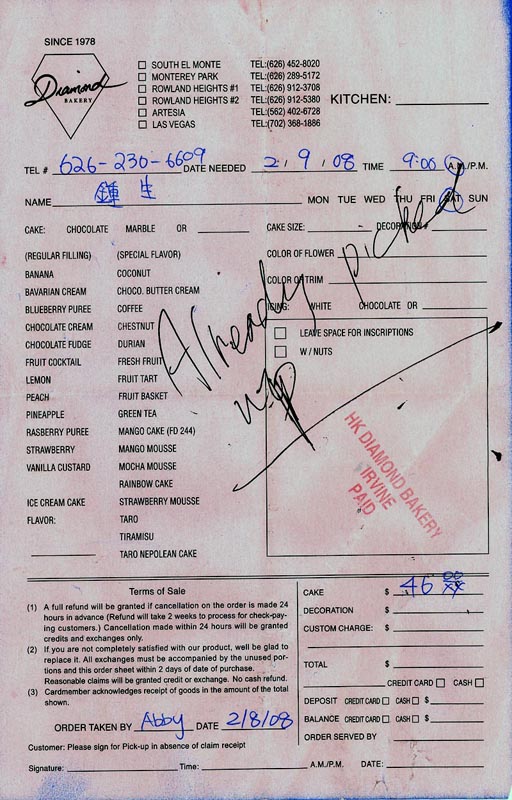 SINCE 1978
Diamond
BAKERY
SOUTH EL MONTE TEL:(626) 452-8020
MONTEREY PARK TEL:(626) 289-5172
ROWLAND HEIGHTS #1 TEL:(626) 912-3708
ROWLAND HEIGHTS #2 TEL:(626) 912-5380
ARTESIA TEL:(562) 402-6728
LAS VEGAS TEL:(702) 368-1886
KITCHEN:
TEL # 626-230-6609 DATE NEEDED 2/9/08 TIME 9:00 A.M./P.M.
NAME 鍾 生 MON TUE WED THU FRI SAT SUN
CAKE: CHOCOLATE MARBLE OR CAKE SIZE: DECORING#
(REGULAR FILLING) (SPECIAL FLAVOR) COLOR OF FLOWER
BANANA COCONUT COLOR OF TRIM
BAVARIAN CREAM CHOCO. BUTTER CREAM
BLUEBERRY PUREE COFFEE ICING: WHITE CHOCOLATE OR
CHOCOLATE CREAM CHESTNUT
CHOCOLATE FUDGE DURIAN
FRUIT COCKTAIL FRESH FRUIT
LEMON FRUIT TART
PEACH FRUIT BASKET
PINEAPPLE GREEN TEA
RASBERRY PUREE MANGO CAKE (FD 244)
STRAWBERRY MANGO MOUSSE
VANILLA CUSTARD MOCHA MOUSSE
RAINBOW CAKE
ICE CREAM CAKE STRAWBERRY MOUSSE
FLAVOR: TARO
TIRAMISU
TARO NEPOLEAN CAKE
LEAVE SPACE FOR INSCRIPTIONS
W / NUTS
Already picked
up
HK DIAMOND BAKERY
IRVINE
PAID
Terms of Sale
(1) A full refund will be granted if cancellation on the order is made 24
hours in advance (Refund will take 2 weeks to process for check-pay-
ing customers.) Cancellation made within 24 hours will be granted
credits and exchanges only.
(2) If you are not completely satisfied with our product, well be glad to
replace it. All exchanges must be accompanied by the unused por-
tions and this order sheet within 2 days of date of purchase.
Reasonable claims will be granted credit or exchange. No cash refund.
(3) Cardmember acknowledges receipt of goods in the amount of the total
shown.
ORDER TAKEN BY Abby DATE 2/8/08
Customer: Please sign for Pick-up in absence of claim receipt
Signature: Time: A.M./P.M. DATE:
CAKE $ 46 00/xx
DECORATION $
CUSTOM CHARGE: $
TOTAL $
CREDIT CARD CASH
DEPOSIT CREDIT CARD CASH $
BALANCE CREDIT CARD CASH $
ORDER SERVED BY